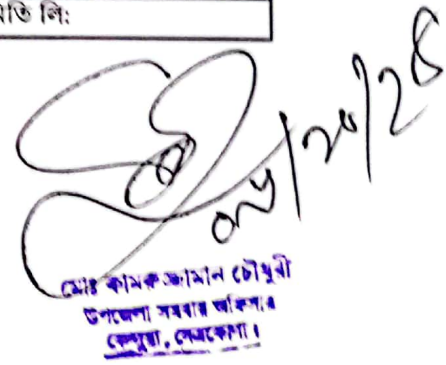 মিতি লি:
মোঃ কামরুজ্জামান চৌধুরী
উপজেলা সমবায় অফিসার
কেন্দুয়া, নেত্রকোণা।